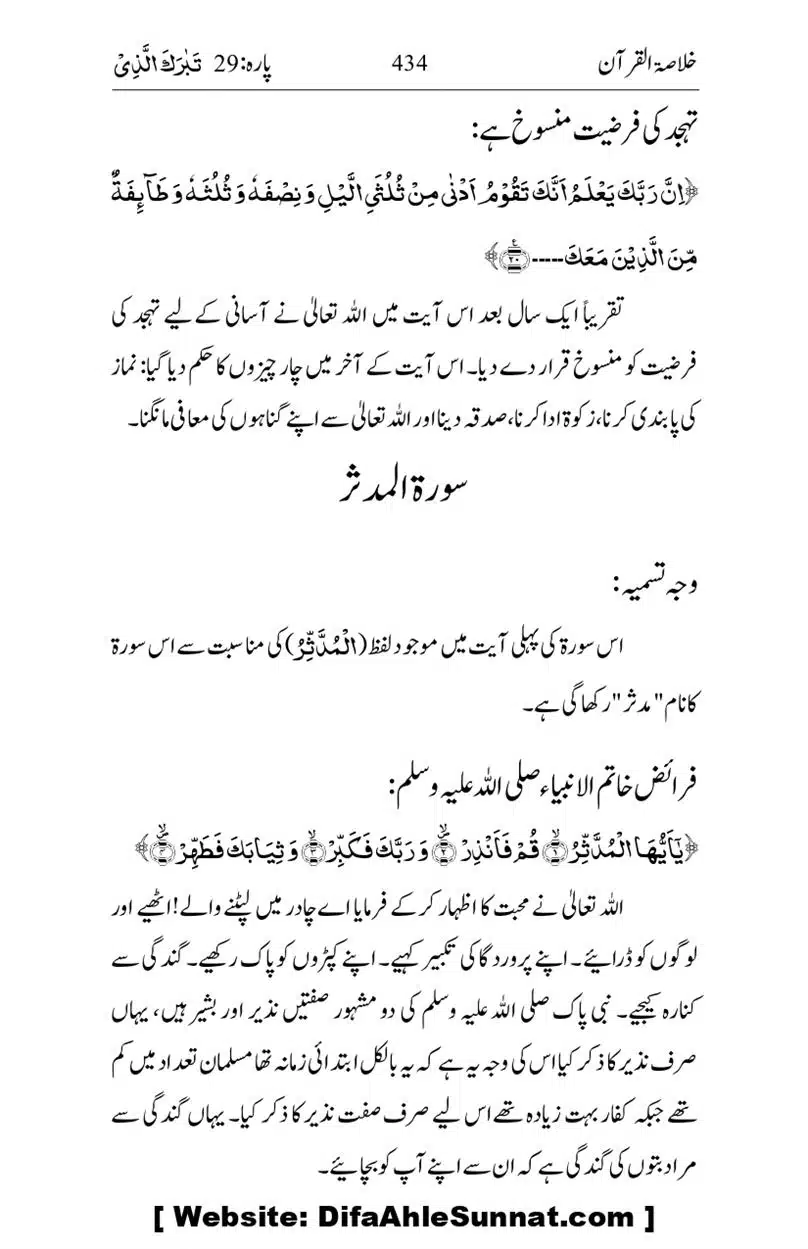 خلاصۃ القرآن 434 پارہ:29 تَبٰرَكَ الَّذِیْ
تہجد کی فرضیت منسوخ ہے:
﴿اِنَّ رَبَّكَ یَعْلَمُ اَنَّكَ تَقُوْمُ اَدْنٰی مِنْ ثُلُثَیِ الَّیْلِ وَ نِصْفَهٗ وَ ثُلُثَهٗ وَ طَآىِٕفَةٌ
مِّنَ الَّذِیْنَ مَعَكَ-----﴿۲۰﴾﴾
تقریباً ایک سال بعد اس آیت میں اللہ تعالیٰ نے آسانی کے لیے تہجد کی
فرضیت کو منسوخ قرار دے دیا۔ اس آیت کے آخر میں چار چیزوں کا حکم دیا گیا: نماز
کی پابندی کرنا، زکوۃ ادا کرنا، صدقہ دینا اور اللہ تعالیٰ سے اپنے گناہوں کی معافی مانگنا۔
سورۃ المدثر
وجہ تسمیہ:
اس سورۃ کی پہلی آیت میں موجود لفظ (الْمُدَّثِّرُ) کی مناسبت سے اس سورۃ
کا نام "مدثر" رکھا گی ہے۔
فرائض خاتم الانبیاء صلی اللہ علیہ وسلم:
﴿یٰۤاَیُّهَا الْمُدَّثِّرُ ﴿۱﴾ قُمْ فَاَنْذِرْ ﴿۲﴾ وَ رَبَّكَ فَكَبِّرْ ﴿۳﴾ وَ ثِیَابَكَ فَطَهِّرْ ﴿۴﴾﴾
اللہ تعالیٰ نے محبت کا اظہار کرکے فرمایا اے چادر میں لپٹنے والے! اٹھیے اور
لوگوں کو ڈرائیے۔ اپنے پروردگا کی تکبیر کہیے۔ اپنے کپڑوں کو پاک رکھیے۔ گندگی سے
کنارہ کیجیے۔ نبی پاک صلی اللہ علیہ وسلم کی دو مشہور صفتیں نذیر اور بشیر ہیں، یہاں
صرف نذیر کا ذکر کیا اس کی وجہ یہ ہے کہ یہ بالکل ابتدائی زمانہ تھا مسلمان تعداد میں کم
تھے جبکہ کفار بہت زیادہ تھے اس لیے صرف صفت نذیر کا ذکر کیا۔ یہاں گندگی سے
مراد بتوں کی گندگی ہے کہ ان سے اپنے آپ کو بچائیے۔
[ Website: DifaAhleSunnat.com ]